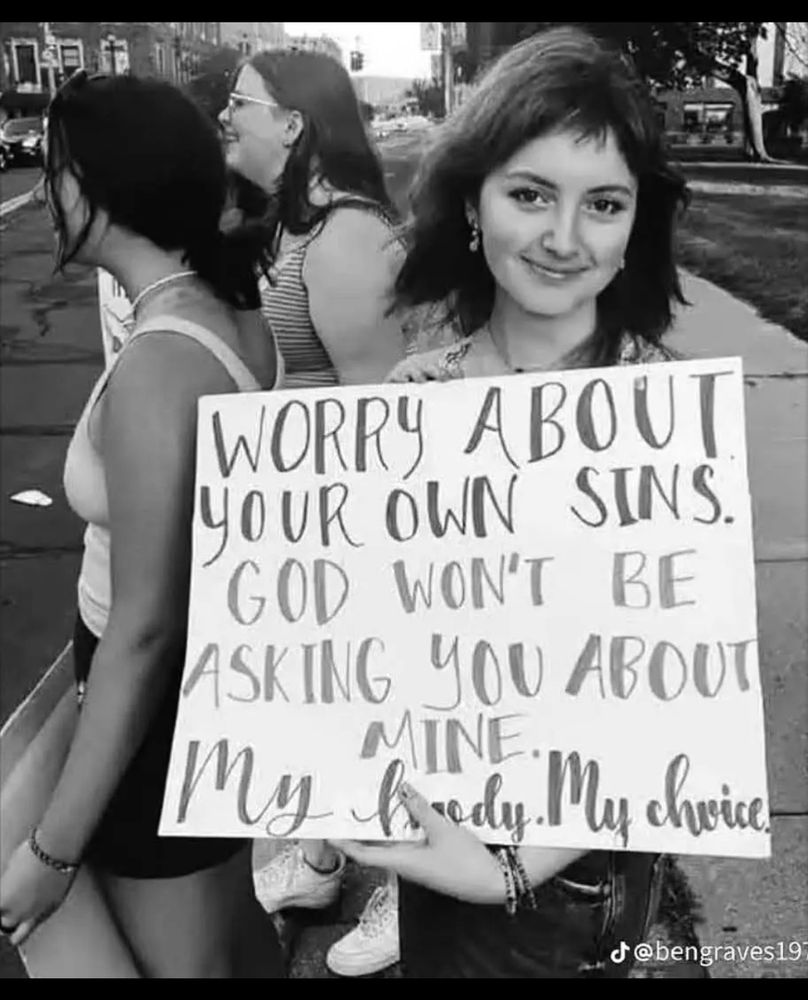 WORRY ABOUT
YOUR OWN SINS.
GOD WON'T BE
ASKING YOU ABOUT
MINE.
My body. My choice.
@bengraves197